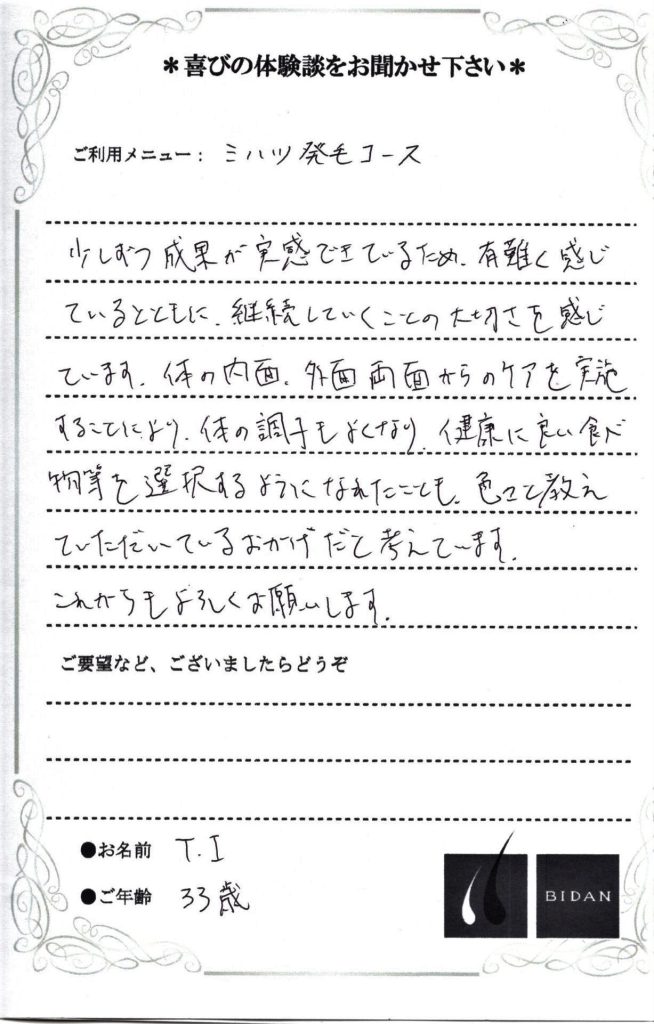 ＊喜びの体験談をお聞かせ下さい＊
ご利用メニュー： ミハツ発毛コース
少しずつ成果が実感できているため、有難く感じ
ているとともに、継続していくことの大切さを感じ
ています。体の内面、外面両面からのケアを実施
することにより、体の調子もよくなり、健康に良い食べ
物等を選択するようになれたことも、色々と教え
ていただいているおかげだと考えています。
これからもよろしくお願いします。
ご要望など、ございましたらどうぞ
●お名前 T.I
●ご年齢 33歳
BIDAN